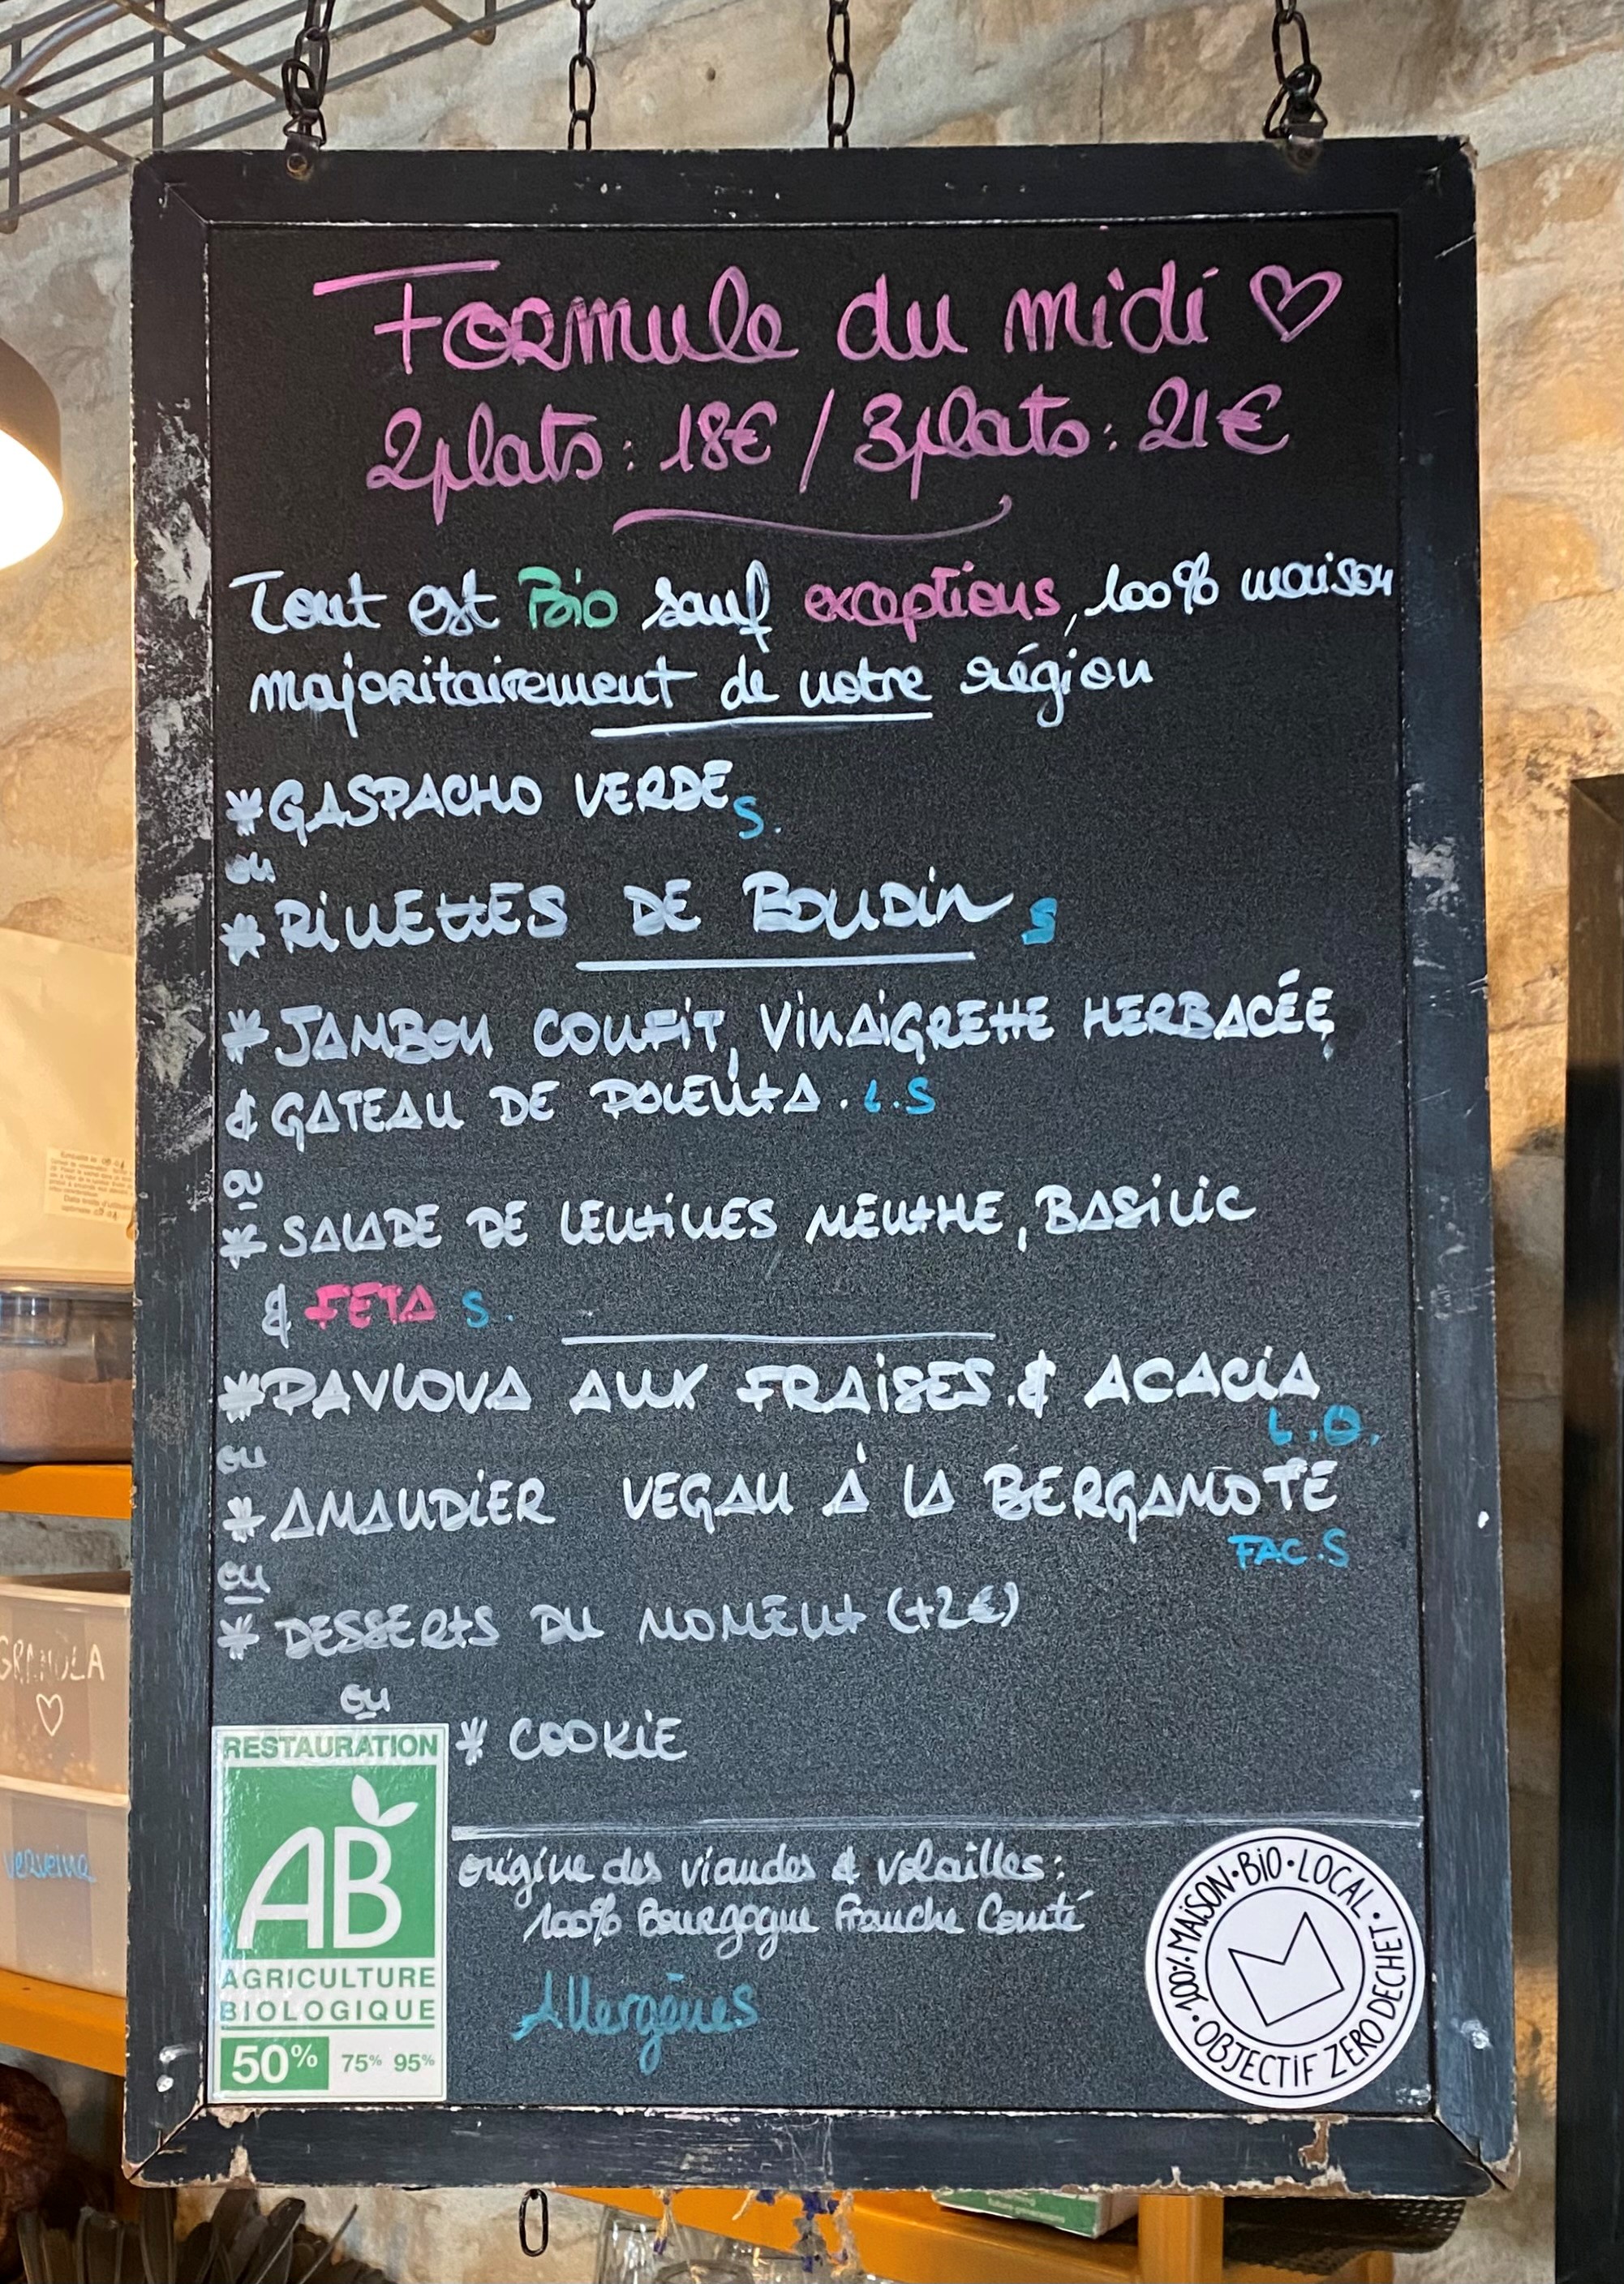 Formule du midi ♡
2plats: 18€ / 3plats: 21€
Tout est Bio sauf exceptions, 100% maison
majoritairement de notre région
*GASPACHO VERDE S.
ou
*RILLETTES DE BOUDIN S
*JAMBON CONFIT, VINAIGRETTE HERBACÉE,
& GATEAU DE POLENTA. L.S
ou
*SALADE DE LENTILLES MENTHE, BASILIC
& FETA S.
*PAVLOVA AUX FRAISES & ACACIA
L.O.
ou
*AMANDIER VEGAN À LA BERGAMOTE
FAC.S
ou
*DESSERTS DU MOMENT (+2€)
ou
* COOKIE
RESTAURATION
AB
AGRICULTURE
BIOLOGIQUE
50% 75% 95%
origine des viandes & volailles:
100% Bourgogne Franche Comté
Allergènes
100% MAISON • BIO • LOCAL • OBJECTIF ZÉRO DECHET •
GRANULA
♡
verveine